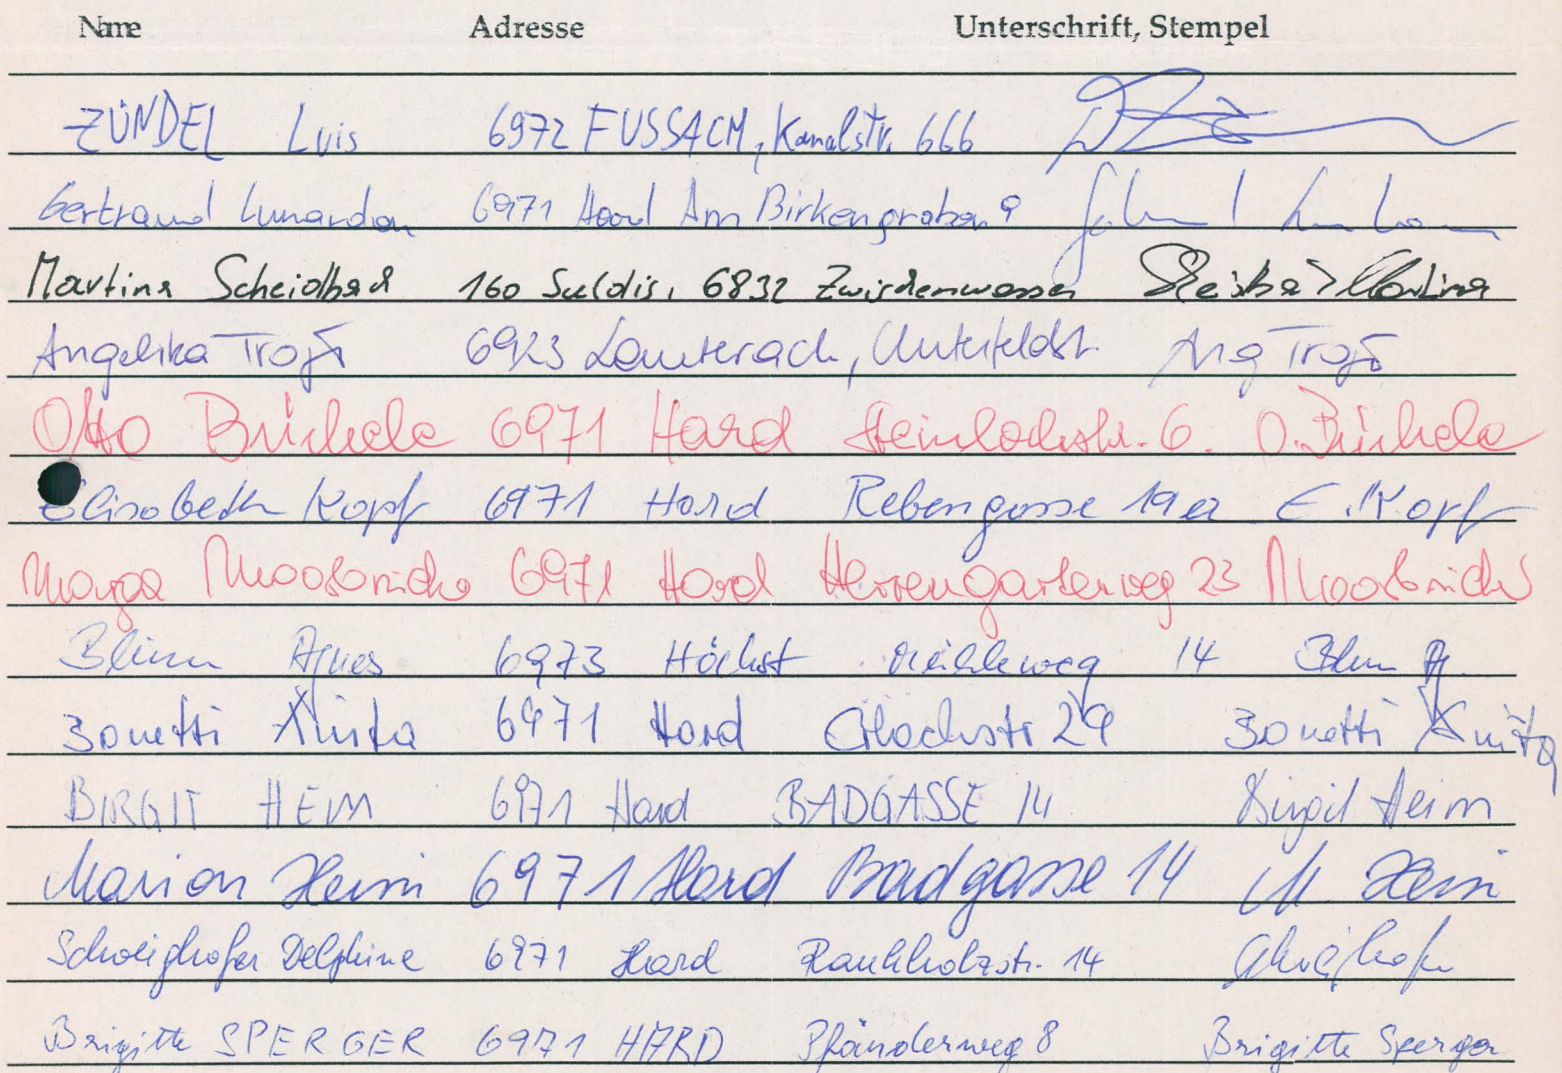 Name Adresse Unterschrift, Stempel
ZÜNDEL Luis 6972 FUSSACH, Kanalstr. 666
Gertraud Lunardon 6971 Hard Am Birkengraben 9
Martina Scheidbach 160 Suldis, 6832 Zwischenwasser Martina
Angelika Troj 6923 Lauterach, Unterfeldstr. Ang Troj
Otto Büchele 6971 Hard Steinlochstr. 6. O. Büchele
Elisabeth Kopf 6971 Hard Rebengasse 19a E. Kopf
Marga Moosbrucker 6971 Hard Herrengartenweg 23 Moosbrucker
Blum Agnes 6973 Höchst Mühleweg 14 Blum A.
Bonetti Anita 6971 Hard 29 Bonetti Anita
BIRGIT HEIM 6971 Hard BADGASSE 14 Birgit Heim
Marion Heim 6971 Hard Badgasse 14 M. Heim
Schweighofer Delphine 6971 Hard Rauhholzstr. 14 Schweighofer
Brigitte SPERGER 6971 HARD Pfänderweg 8 Brigitte Sperger